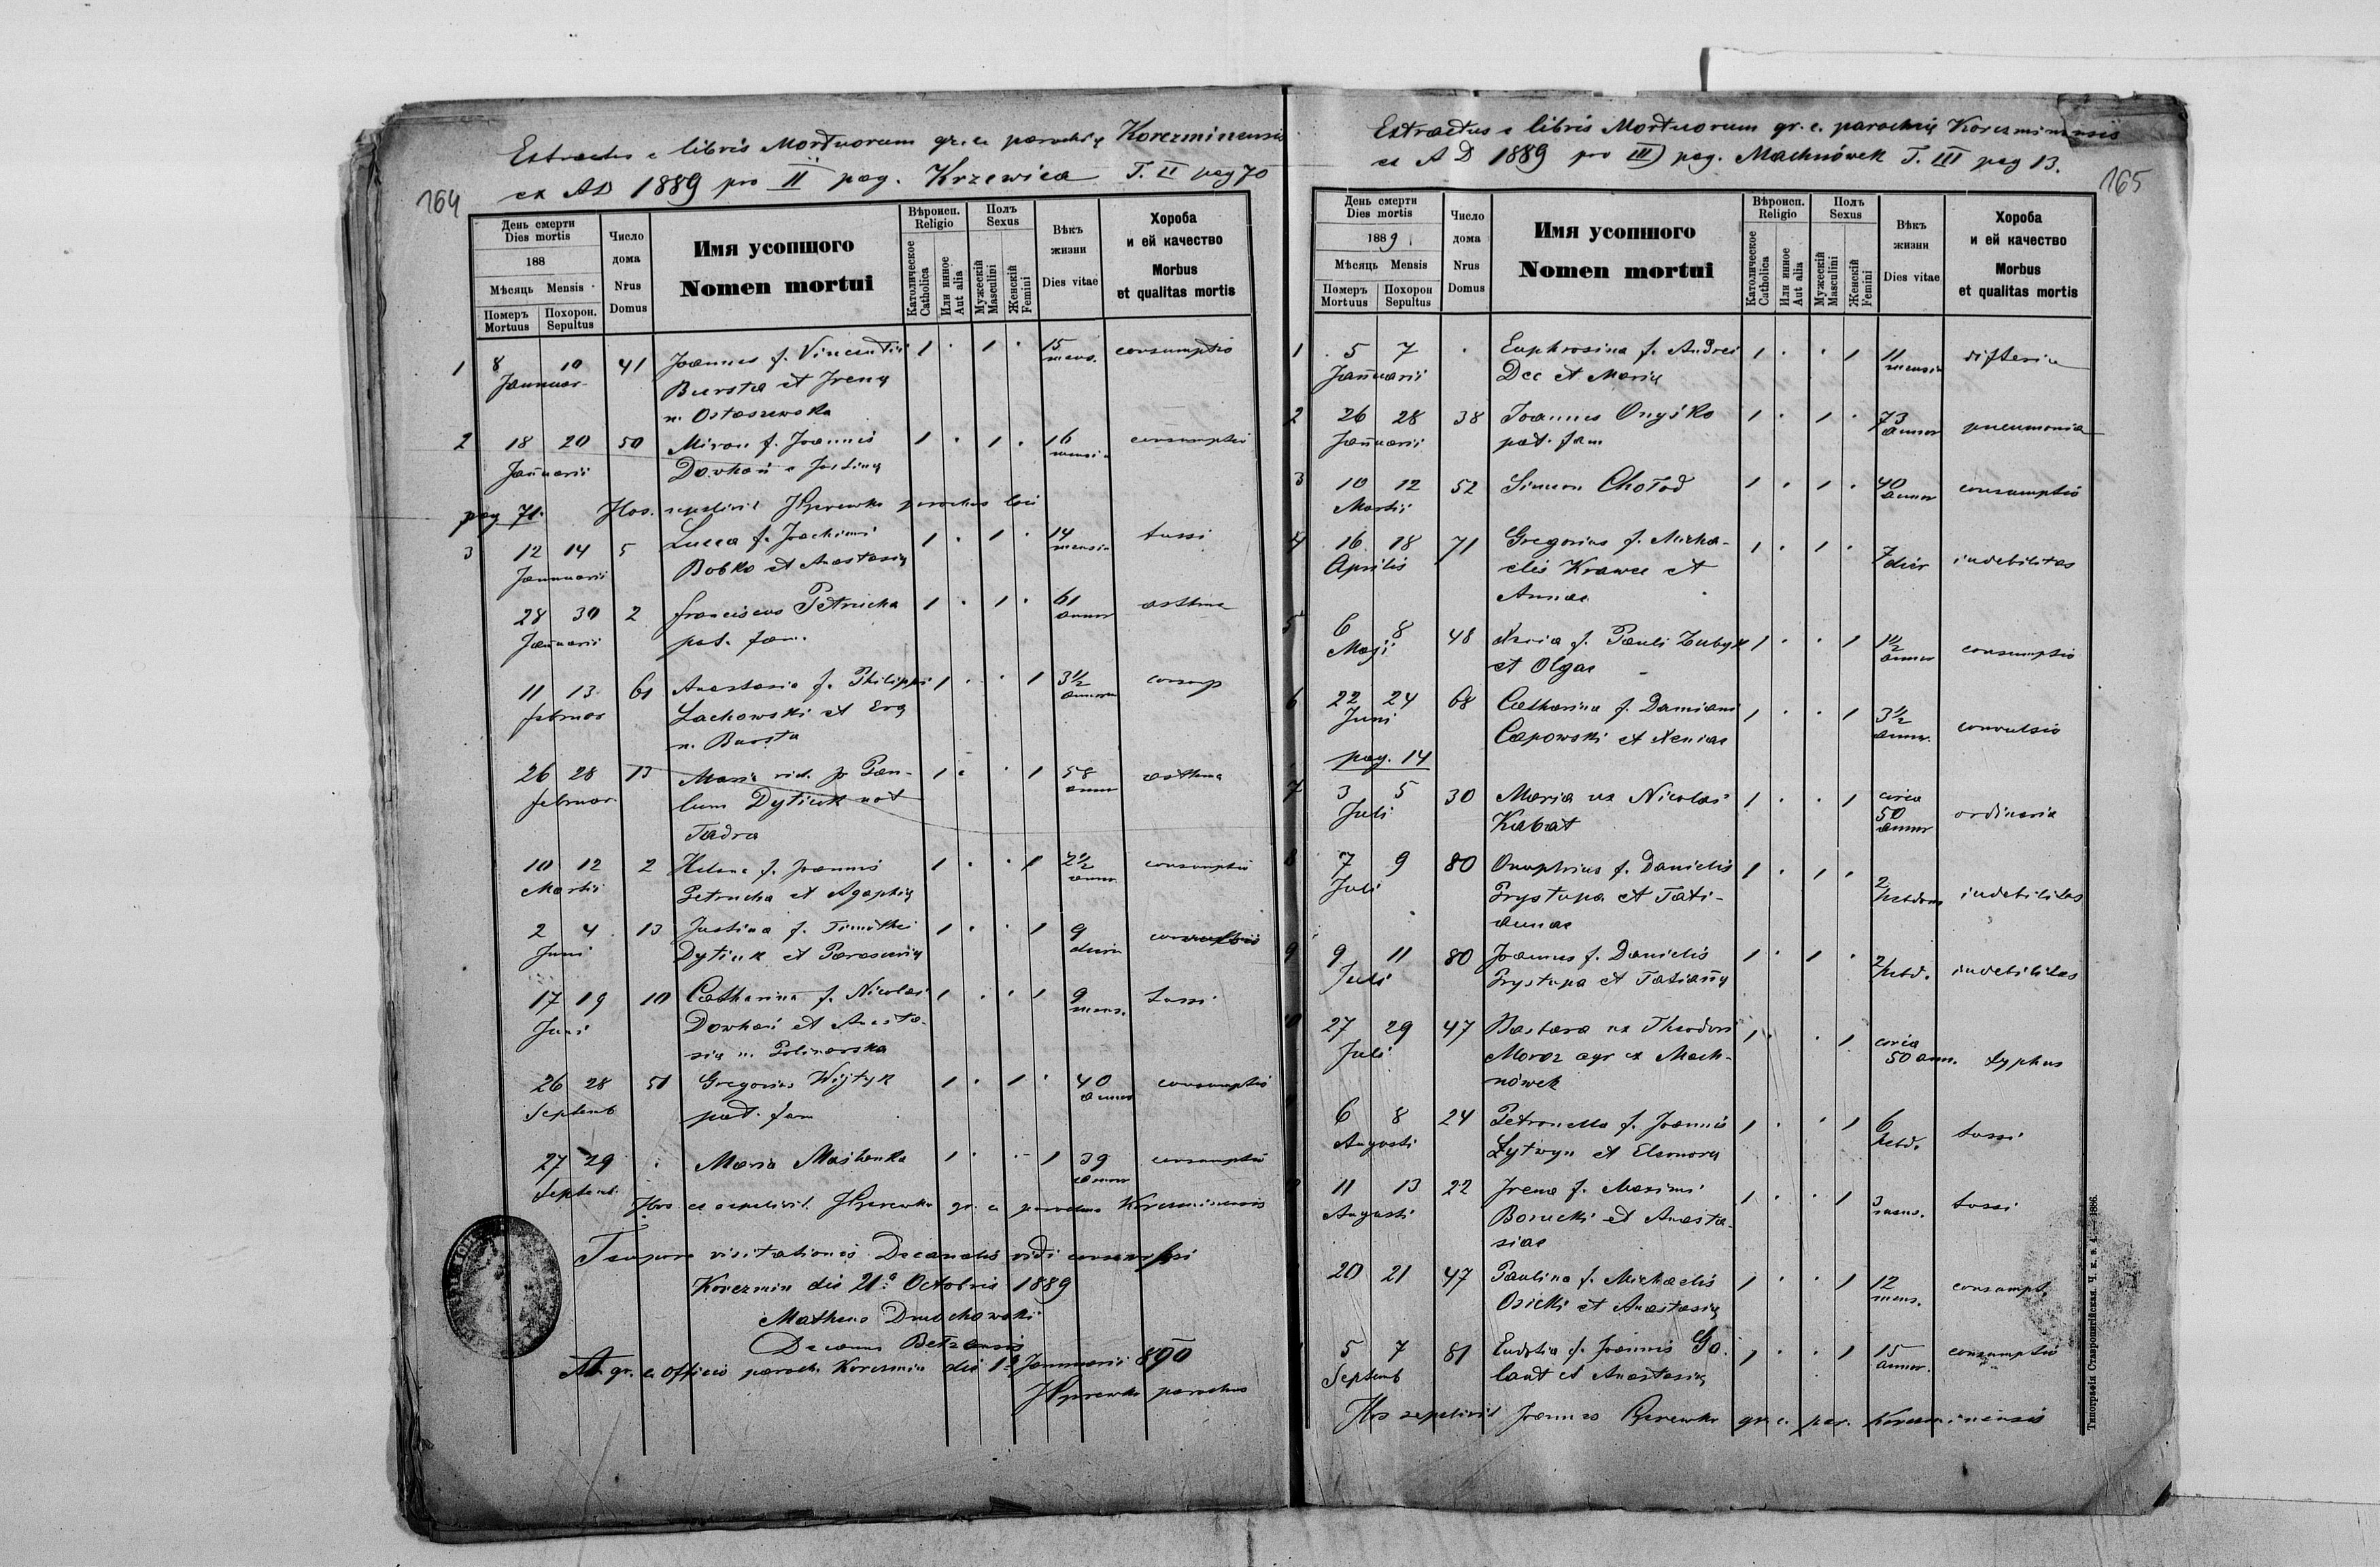 Extractus e libris Mortuorum gr. c. parochię Korczminensis
ex AD 1889 pro II pag. Krzewica T. II pag 70
164
День смерти
Dies mortis
188
Мѣсяць Mensis
Померъ
Mortuus
Похорон.
Sepultus
Число
дома
Nrus
Domus
Имя усопщого
Nomen mortui
Вѣроисп.
Religio
Католическое
Catholica
Или инное
Aut alia
Полъ
Sexus
Мужескій
Masculini
Женскій
Femini
Вѣкъ
жизни
Dies vitae
Хороба
и ей качество
Morbus
et qualitas mortis
1 8 10 41 Joannes f. Vincentii 1 . 1 . 15 mens. consumptio
Januar
Bursta et Irenę
n. Ostaszewska
2 18 20 50 Miron f. Joannis 1 . 1 . 16 mensi consumptio
Januarii Dowhań e Justinę
pag 71. Hos sepelivit parochus loci
3 12 14 5 Lucca f. Joachimi 1 . 1 . 14 mensium tussi
Januarii Bobko et Anastasię
28 30 2 Franciscus Petrucha 1 . 1 . 61 annor asthma
Januarii pat. fam.
11 13 61 Anastasia f. Philippi 1 . . 1 3 1/2 annorum consump
februar Lachowski et Evę
n. Bursta
26 28 13 Maria vid. p. Pau- 1 . . 1 58 annor asthma
februar. lum Dytiuk nat
Fadra
10 12 2 Helena f. Joannis 1 . . 1 2 1/2 annor consumptio
Martii Petrucha et Agaphię
2 4 13 Justina f. Timothei 1 . . 1 9 dierum
Juni Dytiuk et Parascevię
17 19 10 Catharina f. Nicolai 1 . . 1 9 mens. tussi
Juni Dowhań et Anasta-
się n.
26 28 51 Gregorius Wijtyk 1 . 1 . 40 annor consumptio
Septemb pat. fam
27 29 . Maria Maślanka 1 . . 1 39 annor consumptio
Septemb.
Hos sepelivit gr. c. parochus Korczminensis
Tempore visitationis Decanalis vidi
Korczmin die 21a Octobris 1889
Matheus Dmochowski
Decanus Bełzensis
Ab gr. c. officio paroch. Korczmin die Januarii 890
parochus
Extractus e libris Mortuorum gr. c. parochię Korczminensis
ex A D 1889 pro III) pag. Machnówek T. III pag 13.
165
День смерти
Dies mortis
1889
Мѣсяць Mensis
Померъ
Mortuus
Похорон
Sepultus
Число
дома
Nrus
Domus
Имя усопшого
Nomen mortui
Вѣроисп.
Religio
Католическое
Catholica
Или инное
Aut alia
Полъ
Sexus
Мужескій
Masculini
Женскій
Femini
Вѣкъ
жизни
Dies vitae
Хороба
и ей качество
Morbus
et qualitas mortis
1 5 7 . Euphrosina f. Andrei 1 . . 1 11 mensium difteria
Januarii Dec et Marię
2 26 28 38 Joannes Onyśko 1 . 1 . 73 annor pneumonia
Januarii pat. fam
3 10 12 52 Simeon Chołod 1 . 1 . 40 annor consumptio
Martii
4 16 18 71 Gregorius f. Micha- 1 . 1 . 7 dier indebilitas
Aprilis elis Krawec et
Annae
5 6 8 48 f. Pauli Zubyk 1 . . 1 1 1/2 annor consumptio
Maji et Olgae
6 22 24 68 Catharina f. Damiani 1 . . 1 3 1/2 annor. convulsio
Juni Capowski et Xeniae
pag. 14
7 3 5 30 Maria ux Nicolai 1 . . 1 circa 50 annor ordinaria
Juli Kabat
8 7 9 80 Onuphrius f. Danielis 1 . 1 . 2 hebdom indebilitas
Juli Prystupa et Tati-
annae
9 9 11 80 Joannes f. Danielis 1 . 1 . 2 hebd. indebilitas
Juli Prystupa et Tatiannę
10 27 29 47 Barbara ux Theodori 1 . . 1 circa 50 ann. typhus
Juli Moroz agr ex Mach-
nówek
6 8 24 Petronella f. Joannis 1 . . 1 6 hebd. tussi
Augusti Łytwyn et Eleonorę
11 13 22 Irena f. Maximi 1 . . 1 3 mens. tussi
Augusti Borucki et Anasta-
siae
20 21 47 Paulina f. Michaelis 1 . . 1 12 mens. consumpt.
Osicki et Anastasię
5 7 81 Eudokia f. Joannis Go- 1 . . 1 15 annor. consumptio
Septemb laut et Anastasię
Hos sepelivit Joannes gr. c. par. Korczminensis
Типографія Ставропигійская. Ч. к. в. 4. — 1886.